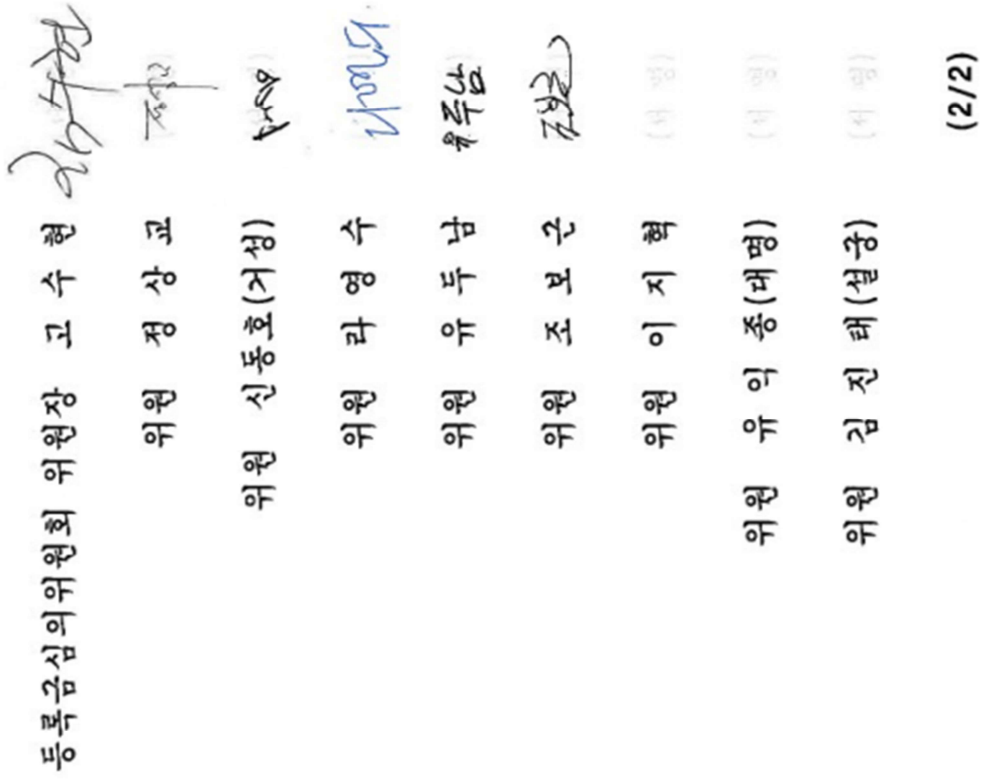 등록금심의위원회 위원장 고 수 현 고수현
위원 정 상 교
위원 신동호(거성)
위원 라 영 수
위원 유 두 남 유두남
위원 조 보 근
위원 이 지 혁 (서 명)
위원 유 익 종(대명) (서 명)
위원 김 진 태(설궁) (서 명)
(2/2)